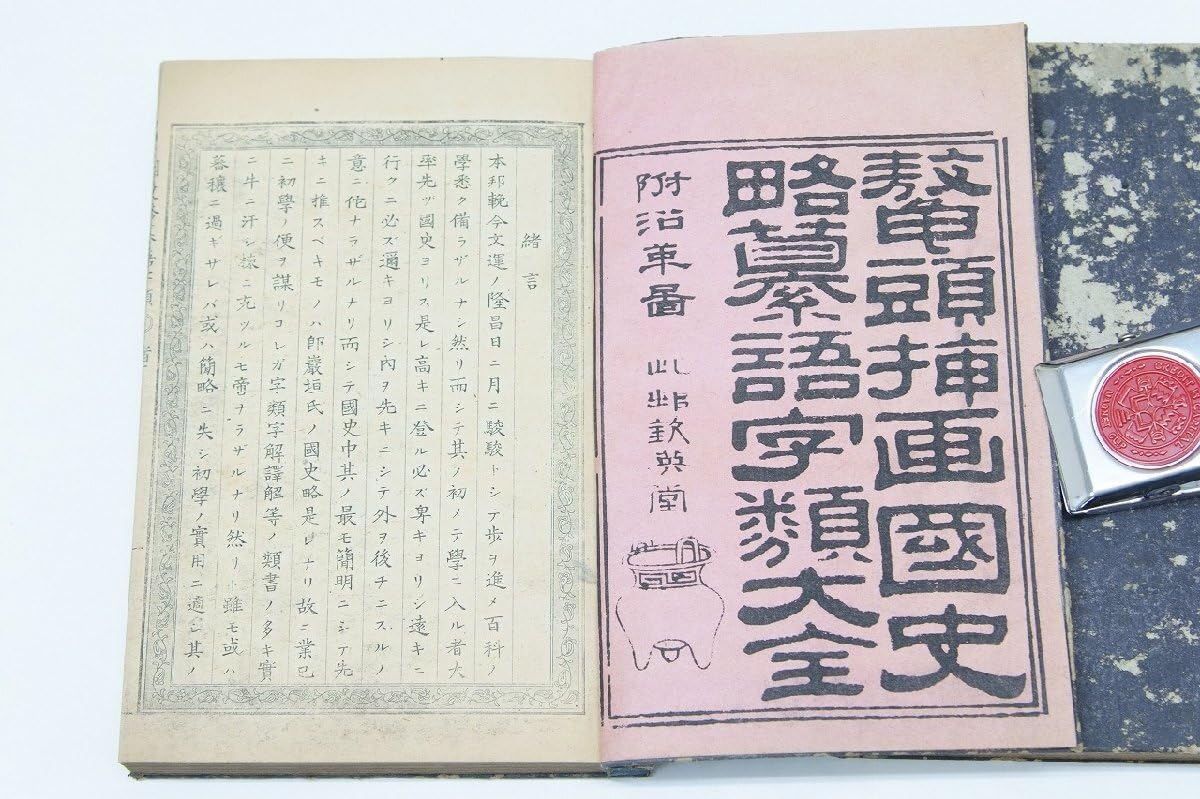 鼇頭挿画國史
略纂語字類大全
附沿革圖 此邨欽英堂
緒言
本邦輓今文運ノ隆昌日ニ月ニ駿駿トシテ歩ヲ進メ百科ノ
學悉ク備ラザルナシ然リ而シテ其ノ初メテ學ニ入ル者大
率先ヅ國史ヨリス是レ高キニ登ル必ズ卑キヨリシ遠キニ
行クニ必ズ邇キヨリシ內ヲ先キニシテ外ヲ後チニスルノ
意ニ佗ナラザルナリ而シテ國史中其ノ最モ簡明ニシテ先
キニ推スベキモノハ即巖垣氏ノ國史略是レナリ故ニ業已
ニ初學ノ便ヲ謀リコレガ字類字解譯解等ノ類書ノ多キ實
ニ牛ニ汗シ棟ニ充ツルモ啻ナラザルナリ然リト雖モ或ハ
蕃穰ニ過ギサレバ或ハ簡略ニ失シ初學ノ實用ニ適 其ノ